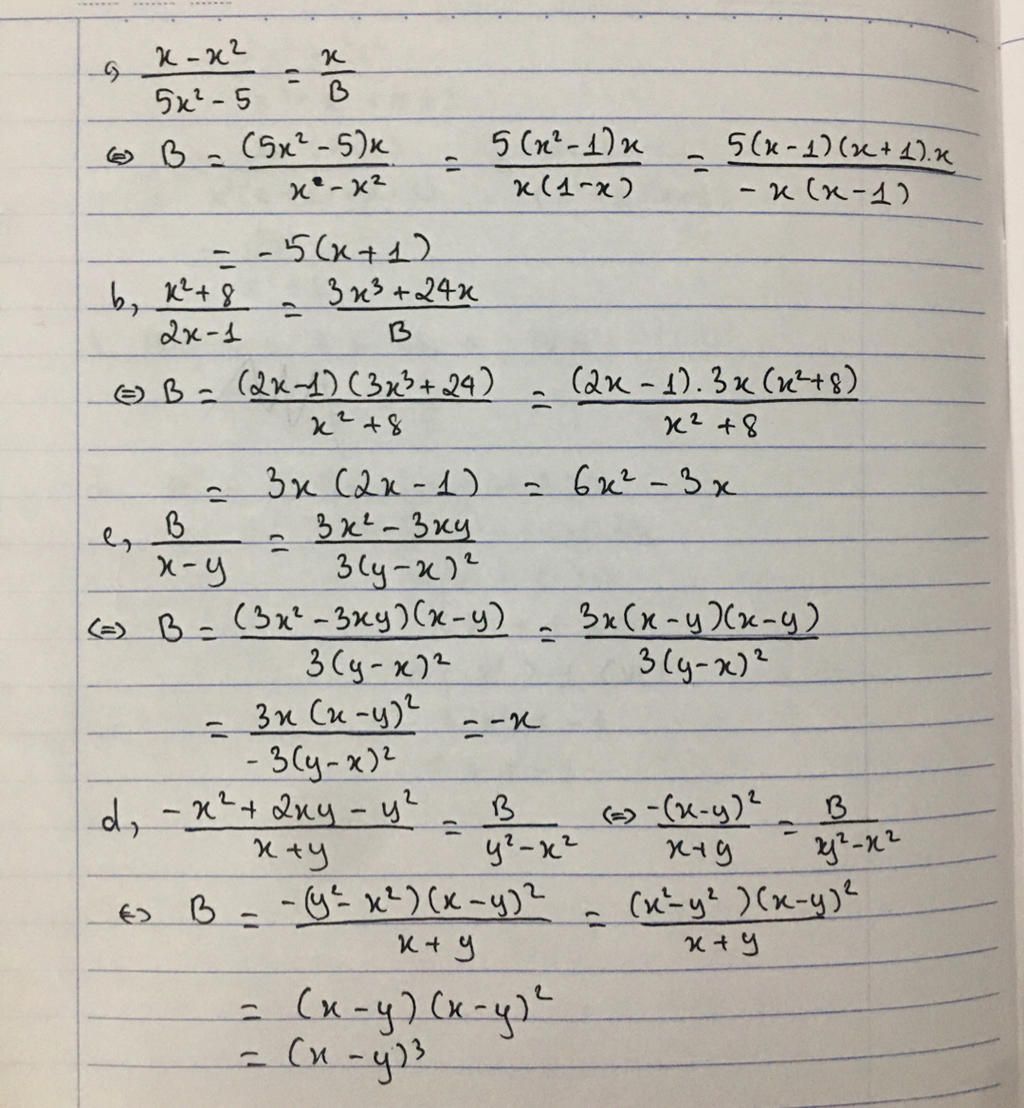 a, (x - x²)/(5x² - 5) = x/B
⇔ B = ((5x² - 5)x)/(x - x²) = (5(x² - 1)x)/(x(1 - x)) = (5(x - 1)(x + 1).x)/(- x(x - 1))
= - 5(x + 1)
b, (x² + 8)/(2x - 1) = (3x³ + 24x)/B
⇔ B = ((2x - 1)(3x³ + 24))/(x² + 8) = ((2x - 1).3x(x² + 8))/(x² + 8)
= 3x(2x - 1) = 6x² - 3x
c, B/(x - y) = (3x² - 3xy)/(3(y - x)²)
⇔ B = ((3x² - 3xy)(x - y))/(3(y - x)²) = (3x(x - y)(x - y))/(3(y - x)²)
= (3x(x - y)²)/(- 3(y - x)²) = - x
d, (- x² + 2xy - y²)/(x + y) = B/(y² - x²) ⇔ (-(x - y)²)/(x + y) = B/(y² - x²)
⇔ B = (-(y² - x²)(x - y)²)/(x + y) = ((x² - y²)(x - y)²)/(x + y)
= (x - y)(x - y)²
= (x - y)³